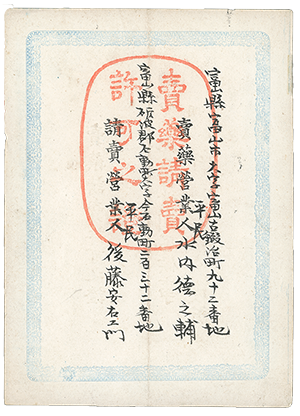 富山縣富山市大字富山古鍛冶町九十二番地
平民
賣藥營業人 水内德之輔
富山縣礪波郡石動町大字今石動町二百三十二番地
平民
請賣營業人 後藤安右エ門
賣藥請賣
許可之